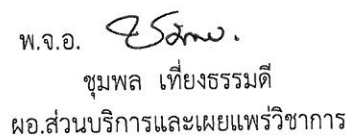 พ.จ.อ.
ชุมพล เที่ยงธรรมดี
ผอ.ส่วนบริการและเผยแพร่วิชาการ